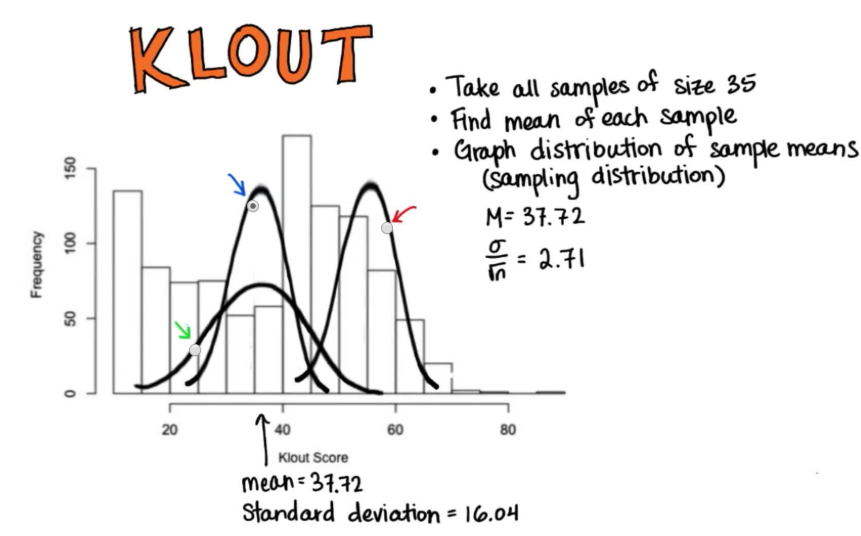 KLOUT
• Take all samples of size 35
• Find mean of each sample
• Graph distribution of sample means
(sampling distribution)
M = 37.72
σ/√n = 2.71
Frequency
150
100
50
0
20 40 60 80
Klout Score
mean = 37.72
Standard deviation = 16.04